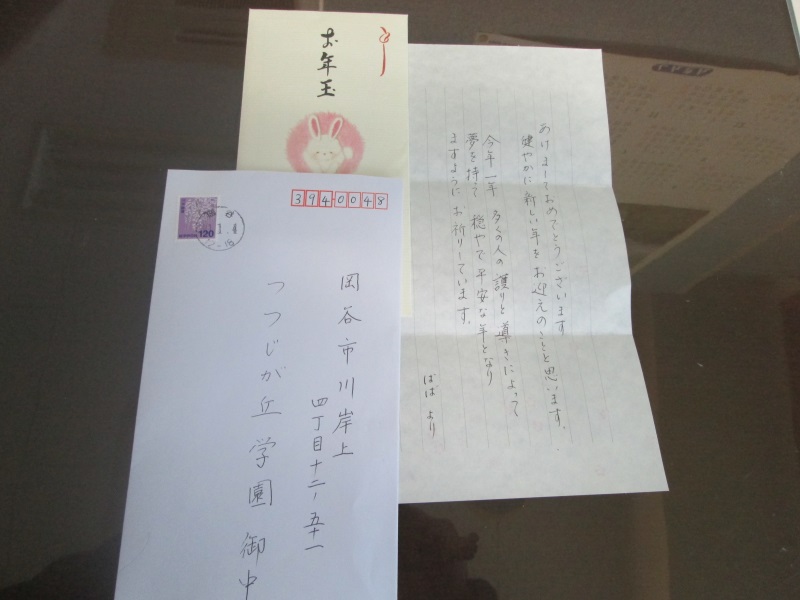 お年玉
394-0048
120
岡谷市川岸上
四丁目十二ノ五十一
つつじが丘学園御中
あけましておめでとうございます
健やかに新しい年をお迎えのことと思います。
今年一年 多くの人の護りと導きによって
夢を持て 穏やで平安な年となり
ますように お祈りしています。
ばば より